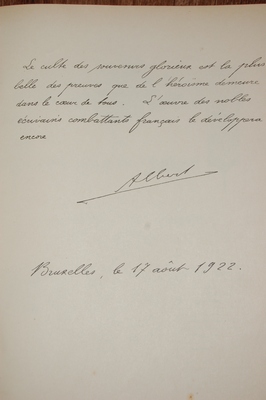 Le culte des souvenirs glorieux est la plus
belle des preuves que de l'héroïsme demeure
dans le cœur de tous. L'œuvre des nobles
écrivains combattants français le développera
encore
Albert
Bruxelles, le 17 août 1922.